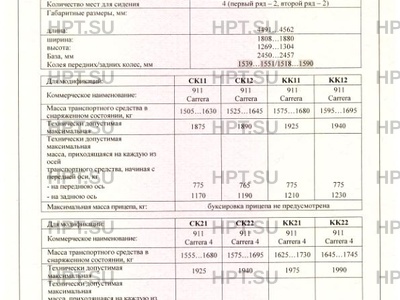 Количество мест для сидения 4 (первый ряд – 2, второй ряд – 2)
Габаритные размеры, мм:
длина: 4491…4562
ширина: 1808…1880
высота: 1269…1304
База, мм 2450…2457
Колея передних/задних колес, мм 1539…1551/1518…1590
Для модификаций: CK11 CK12 KK11 KK12
Коммерческое наименование: 911 Carrera 911 Carrera 911 Carrera 911 Carrera
Масса транспортного средства в снаряженном состоянии, кг 1505…1630 1525…1645 1575…1680 1595…1695
Технически допустимая максимальная 1875 1890 1925 1940
Технически допустимая
максимальная
масса, приходящаяся на каждую из
осей
транспортного средства, начиная с
передней оси, кг
- на переднюю ось 775 765 775 775
- на заднюю ось 1170 1190 1210 1230
Максимальная масса прицепа, кг: буксировка прицепа не предусмотрена
Для модификаций: CK21 CK22 KK21 KK22
Коммерческое наименование: 911 Carrera 4 911 Carrera 4 911 Carrera 4 911 Carrera 4
Масса транспортного средства в снаряженном состоянии, кг 1555…1680 1575…1695 1625…1730 1645…1745
Технически допустимая максимальная 1925 1940 1975 1990
Технически допустимая
максимальная
масса, приходящаяся на каждую из
HPT.SU HPT.SU HPT.SU
HPT.SU HPT.SU HPT.SU
HPT.SU HPT.SU HPT.SU
HPT.SU HPT.SU HPT.SU
HPT.SU HPT.SU HPT.SU
HPT.SU HPT.SU HPT.SU